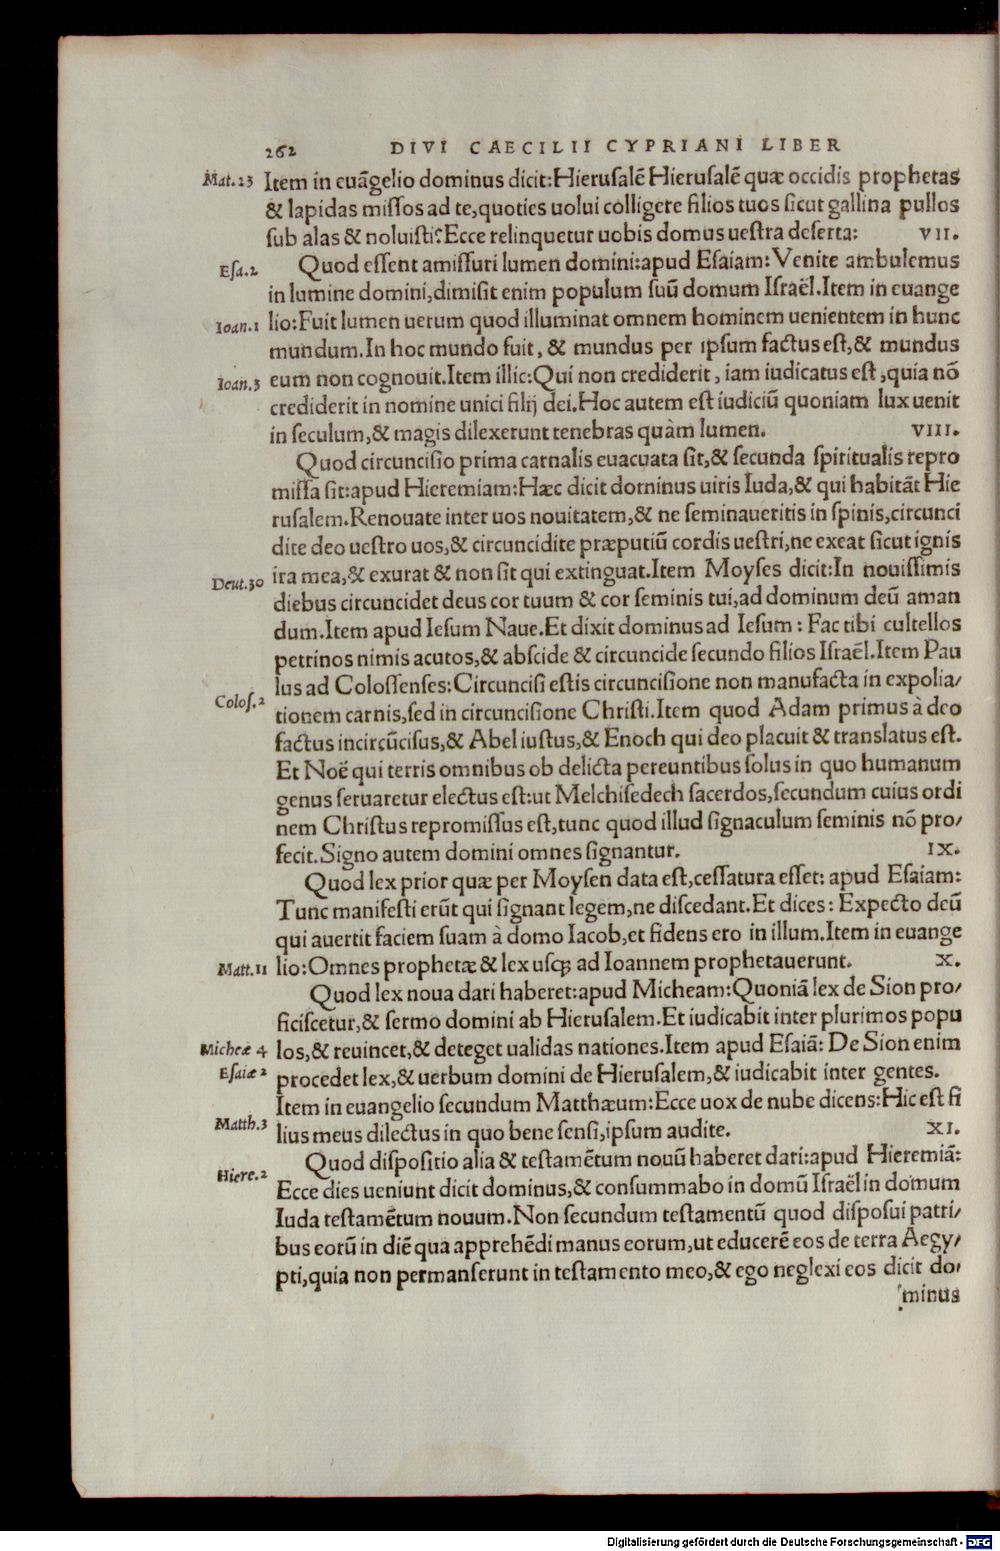 262 DIVI CAECILII CYPRIANI LIBER
Mat.23 Item in euãgelio dominus dicit:Hieruſalẽ Hieruſalẽ quæ occidis prophetas
& lapidas miſſos ad te,quoties uolui colligere filios tuos ſicut gallina pullos
ſub alas & noluiſti?Ecce relinquetur uobis domus ueſtra deſerta: VII.
Eſa.2 Quod eſſent amiſſuri lumen domini:apud Eſaiam:Venite ambulemus
in lumine domini,dimiſit enim populum ſuũ domum Iſraël.Item in euange
Ioan.1 lio:Fuit lumen uerum quod illuminat omnem hominem uenientem in hunc
mundum.In hoc mundo fuit, & mundus per ipſum factus eſt,& mundus
Ioan.3 eum non cognouit.Item illic:Qui non crediderit, iam iudicatus eſt,quia nõ
crediderit in nomine unici filij dei.Hoc autem eſt iudiciũ quoniam lux uenit
in ſeculum,& magis dilexerunt tenebras quàm lumen. VIII.
Quod circunciſio prima carnalis euacuata ſit,& ſecunda ſpiritualis repro
miſſa ſit:apud Hieremiam:Hæc dicit dominus uiris Iuda,& qui habitãt Hie
ruſalem.Renouate inter uos nouitatem,& ne ſeminaueritis in ſpinis,circunci
dite deo ueſtro uos,& circuncidite præputiũ cordis ueſtri,ne exeat ſicut ignis
Deut.30 ira mea,& exurat & non ſit qui extinguat.Item Moyſes dicit:In nouiſſimis
diebus circuncidet deus cor tuum & cor ſeminis tui,ad dominum deũ aman
dum.Item apud Ieſum Naue.Et dixit dominus ad Ieſum: Fac tibi cultellos
petrinos nimis acutos,& abſcide & circuncide ſecundo filios Iſraël.Item Pau
Coloſ.2 lus ad Coloſſenſes:Circunciſi eſtis circunciſione non manufacta in expolia/
tionem carnis,ſed in circunciſione Chriſti.Item quod Adam primus à deo
factus incircũciſus,& Abel iuſtus,& Enoch qui deo placuit & translatus eſt.
Et Noë qui terris omnibus ob delicta pereuntibus ſolus in quo humanum
genus ſeruaretur electus eſt:ut Melchiſedech ſacerdos,ſecundum cuius ordi
nem Chriſtus repromiſſus eſt,tunc quod illud ſignaculum ſeminis nõ pro/
fecit.Signo autem domini omnes ſignantur. IX.
Quod lex prior quæ per Moyſen data eſt,ceſſatura eſſet: apud Eſaiam:
Tunc manifeſti erũt qui ſignant legem,ne diſcedant.Et dices: Expecto deũ
qui auertit faciem ſuam à domo Iacob,et fidens ero in illum.Item in euange
Matt.11 lio:Omnes prophetæ & lex uſq; ad Ioannem prophetauerunt. X.
Quod lex noua dari haberet:apud Micheam:Quoniã lex de Sion pro/
ficiſcetur,& ſermo domini ab Hieruſalem.Et iudicabit inter plurimos popu
Micheæ 4 los,& reuincet,& deteget ualidas nationes.Item apud Eſaiã: De Sion enim
Eſaiæ 2 procedet lex,& uerbum domini de Hieruſalem,& iudicabit inter gentes.
Item in euangelio ſecundum Matthæum:Ecce uox de nube dicens:Hic eſt fi
Matth.3 lius meus dilectus in quo bene ſenſi,ipſum audite. XI.
Hiere.2 Quod diſpoſitio alia & teſtamẽtum nouũ haberet dari:apud Hieremiã:
Ecce dies ueniunt dicit dominus,& conſummabo in domũ Iſraël in domum
Iuda teſtamẽtum nouum.Non ſecundum teſtamentũ quod diſpoſui patri/
bus eorũ in diẽ qua apprehẽdi manus eorum,ut educerẽ eos de terra Aegy/
pti,quia non permanſerunt in teſtamento meo,& ego neglexi eos dicit do/
minus
Digitalisierung gefördert durch die Deutsche Forschungsgemeinschaft - DFG